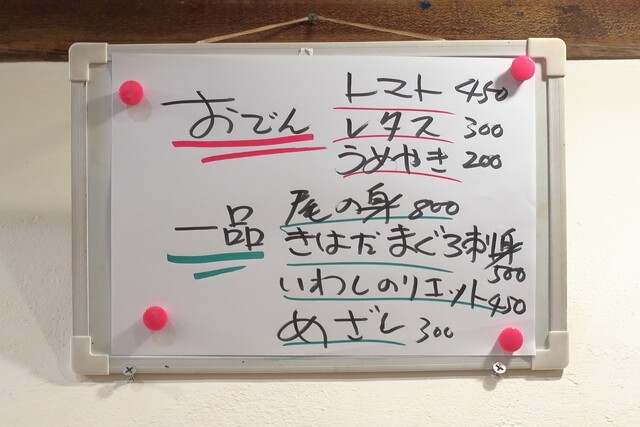 おでん
トマト 450
レタス 300
うめやき 200
一品
尾の身 800
きはだまぐろ刺身
500
いわしのリエット 450
めざし 300